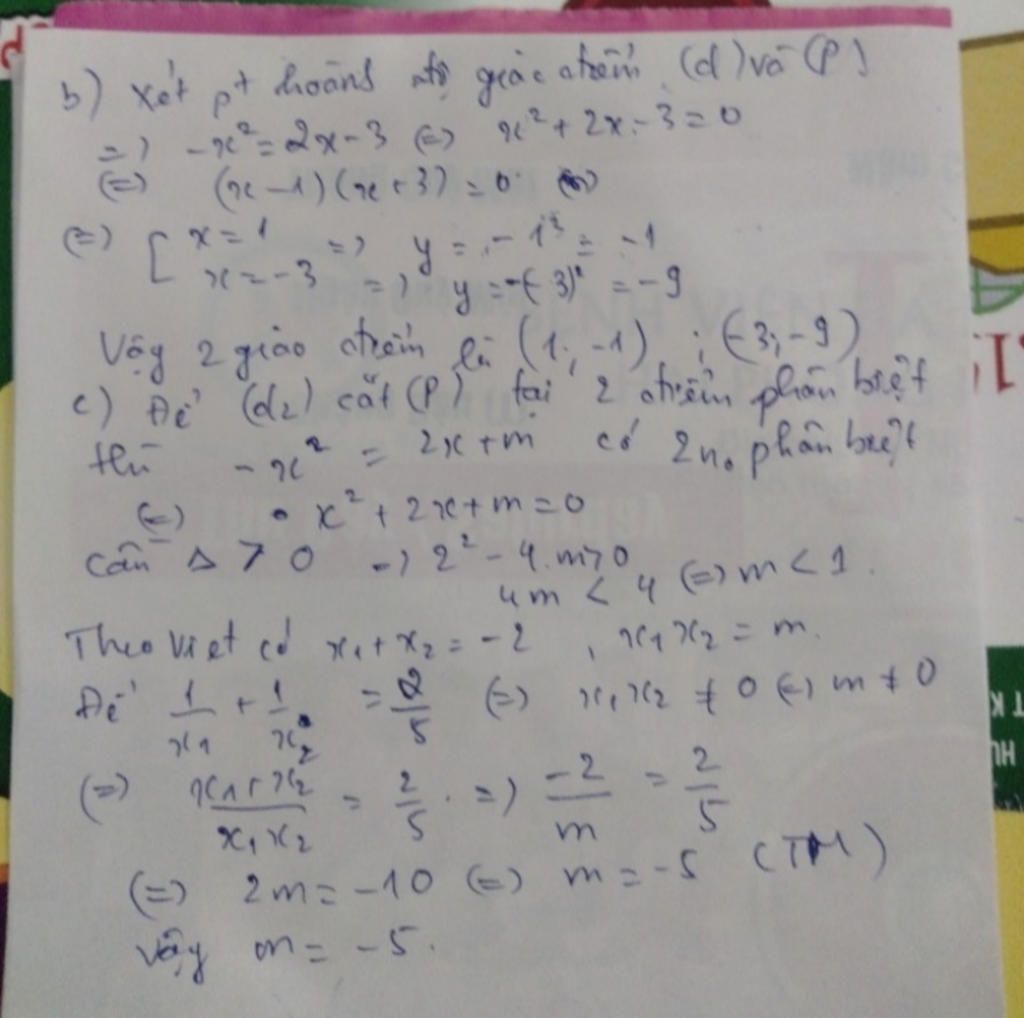 b) Xét pt hoành độ giao điểm (d) và (P)
=) -x² = 2x-3 (=) x² + 2x - 3 = 0
(=) (x-1)(x+3) = 0
(=) [ x = 1 =) y = -1² = -1
x = -3 =) y = -(-3)² = -9
Vậy 2 giao điểm là (1; -1) ; (-3; -9)
c) Để (d₂) cắt (P) tại 2 điểm phân biệt
thì -x² = 2x+m có 2 n₀ phân biệt
(=) x² + 2x + m = 0
cần Δ > 0 =) 2² - 4.m > 0
4m < 4 (=) m < 1.
Theo Viet có x₁ + x₂ = -2 , x₁x₂ = m.
Để 1/x₁ + 1/x₂ = 2/5 (=) x₁x₂ ≠ 0 (=) m ≠ 0
(=) x₁+x₂/x₁x₂ = 2/5 . =) -2/m = 2/5
(=) 2m = -10 (=) m = -5 (TM)
Vậy m = -5.